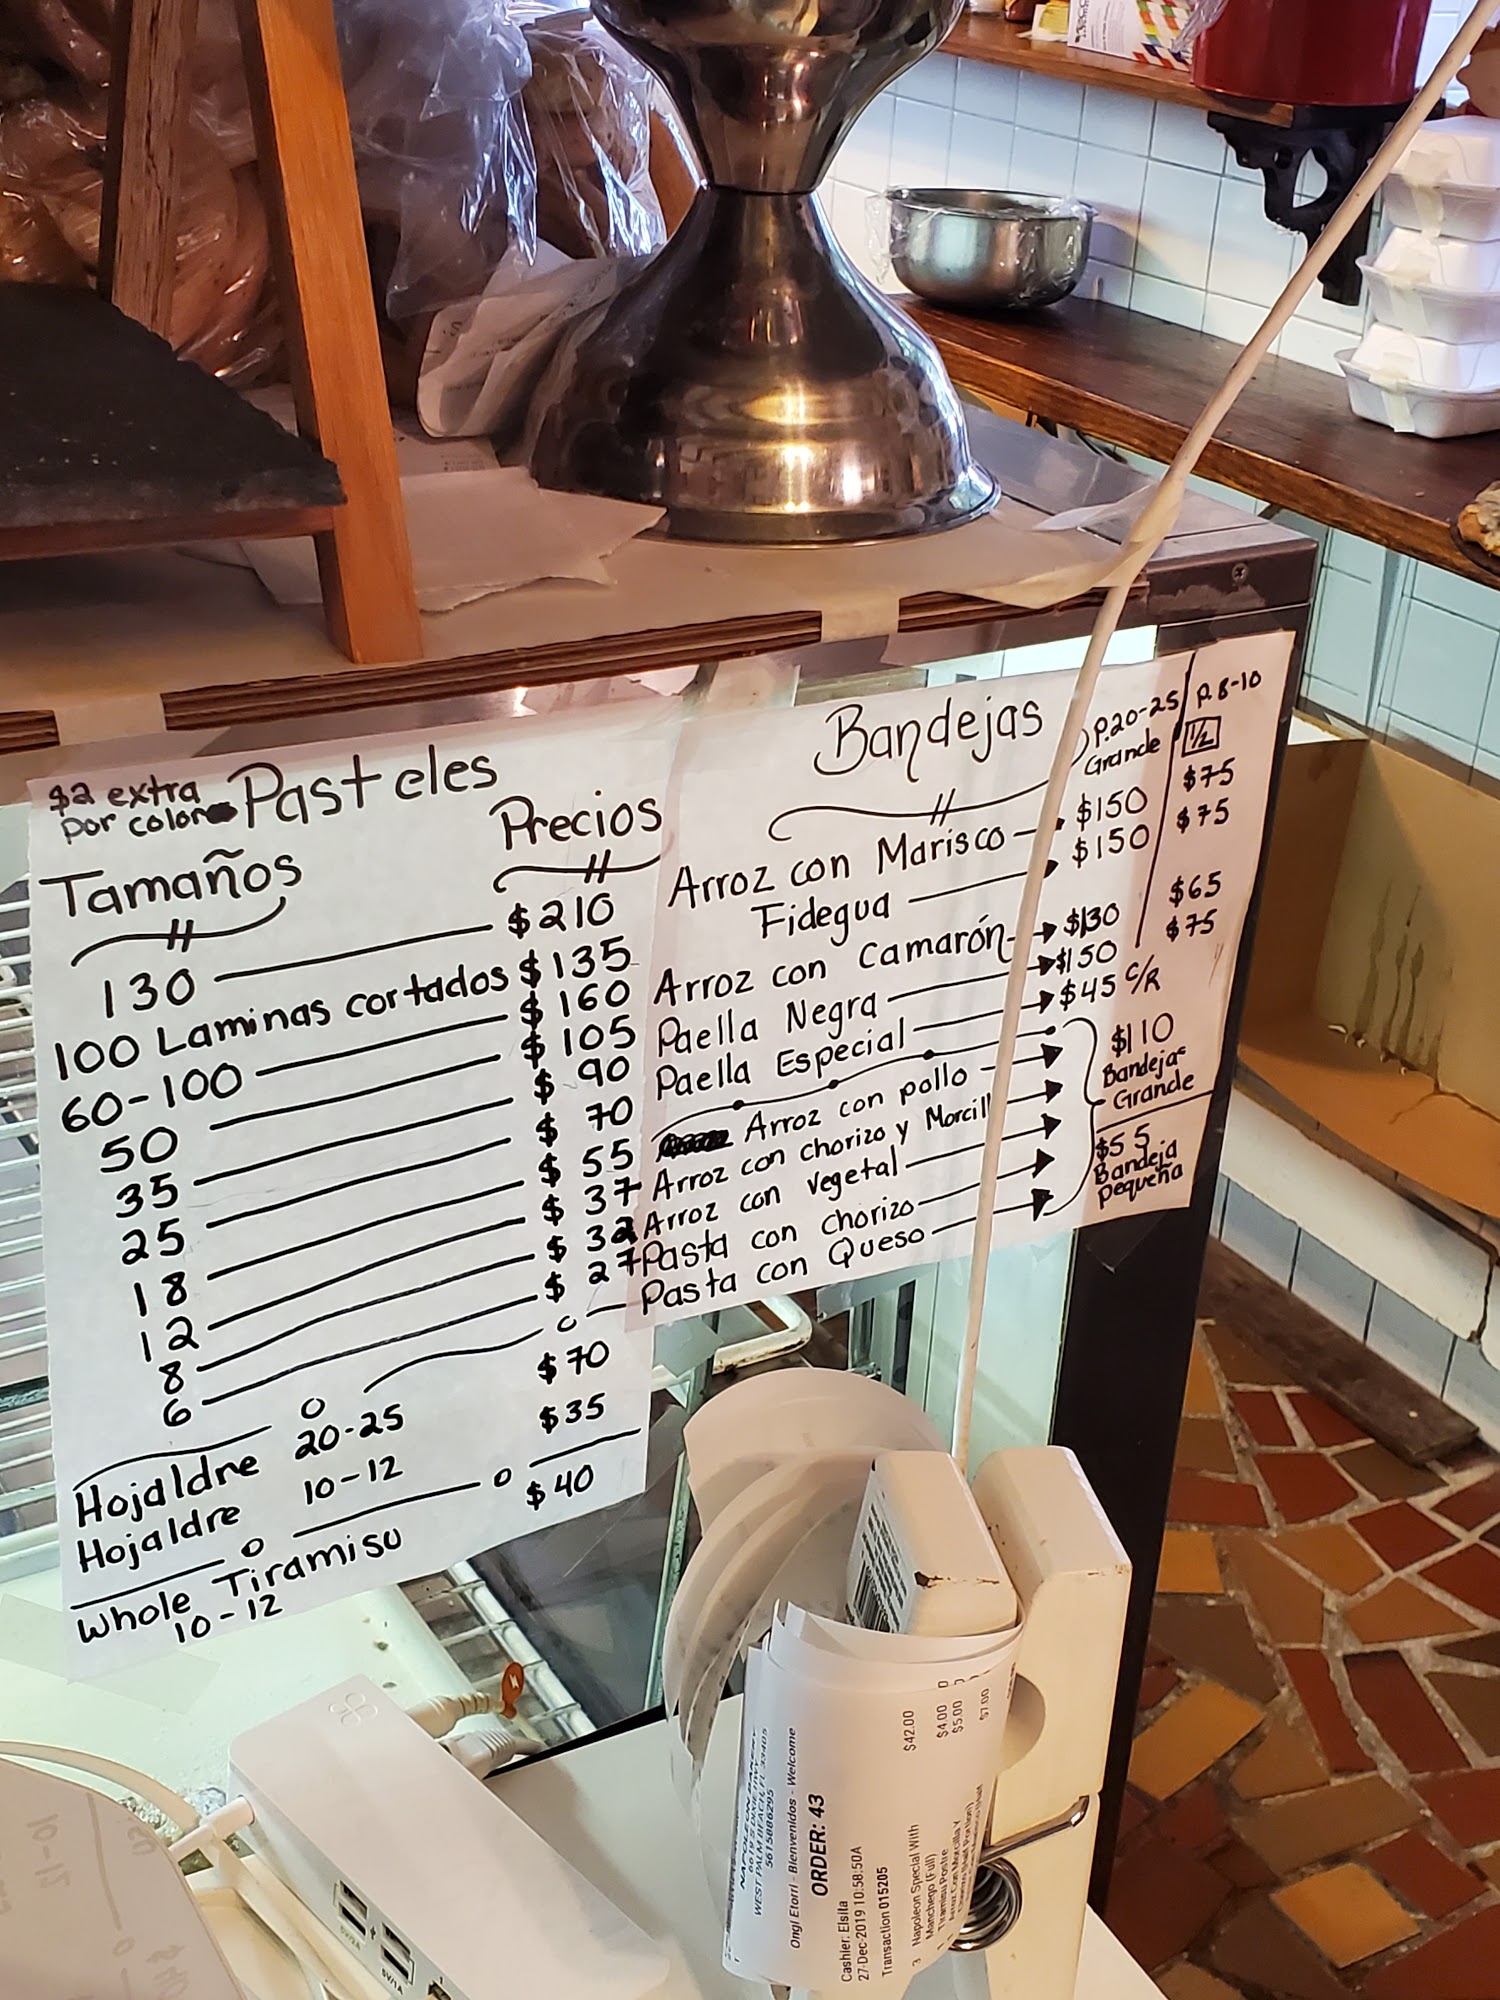 $2 extra
por color
Pasteles
Tamaños
Precios
130 $210
100 Laminas cortados $135
60-100 $160
50 $105
35 $90
25 $70
18 $55
12 $37
8 $32
6 $27
Hojaldre 20-25 $70
Hojaldre 10-12 $35
Whole Tiramisu $40
10-12
Bandejas
P.20-25
Grande
P. 8-10
1/2
Arroz con Marisco $150 $75
Fidegua $150 $75
Arroz con Camarón $130 $65
Paella Negra $150 $75
Paella Especial $45 C/R
Arroz con pollo
Arroz con chorizo y Morcill
Arroz con vegetal
Pasta con chorizo
Pasta con Queso
$110
Bandejas
Grande
$55
Bandeja
pequeña
NAPOLEON BAKERY
WEST PALM BEACH, FL 33405
5615886295
Ongi Etorri - Bienvenidos - Welcome
ORDER: 43
Cashier: Elsita
27-Dec-2019 10:58:50A
Transaction 015205
3 Napoleon Special With $42.00
Manchego (Full)
Tiramisu Postre $4.00
Arroz Con Morcilla Y $5.00
$7.00
5V/2A
5V/1A